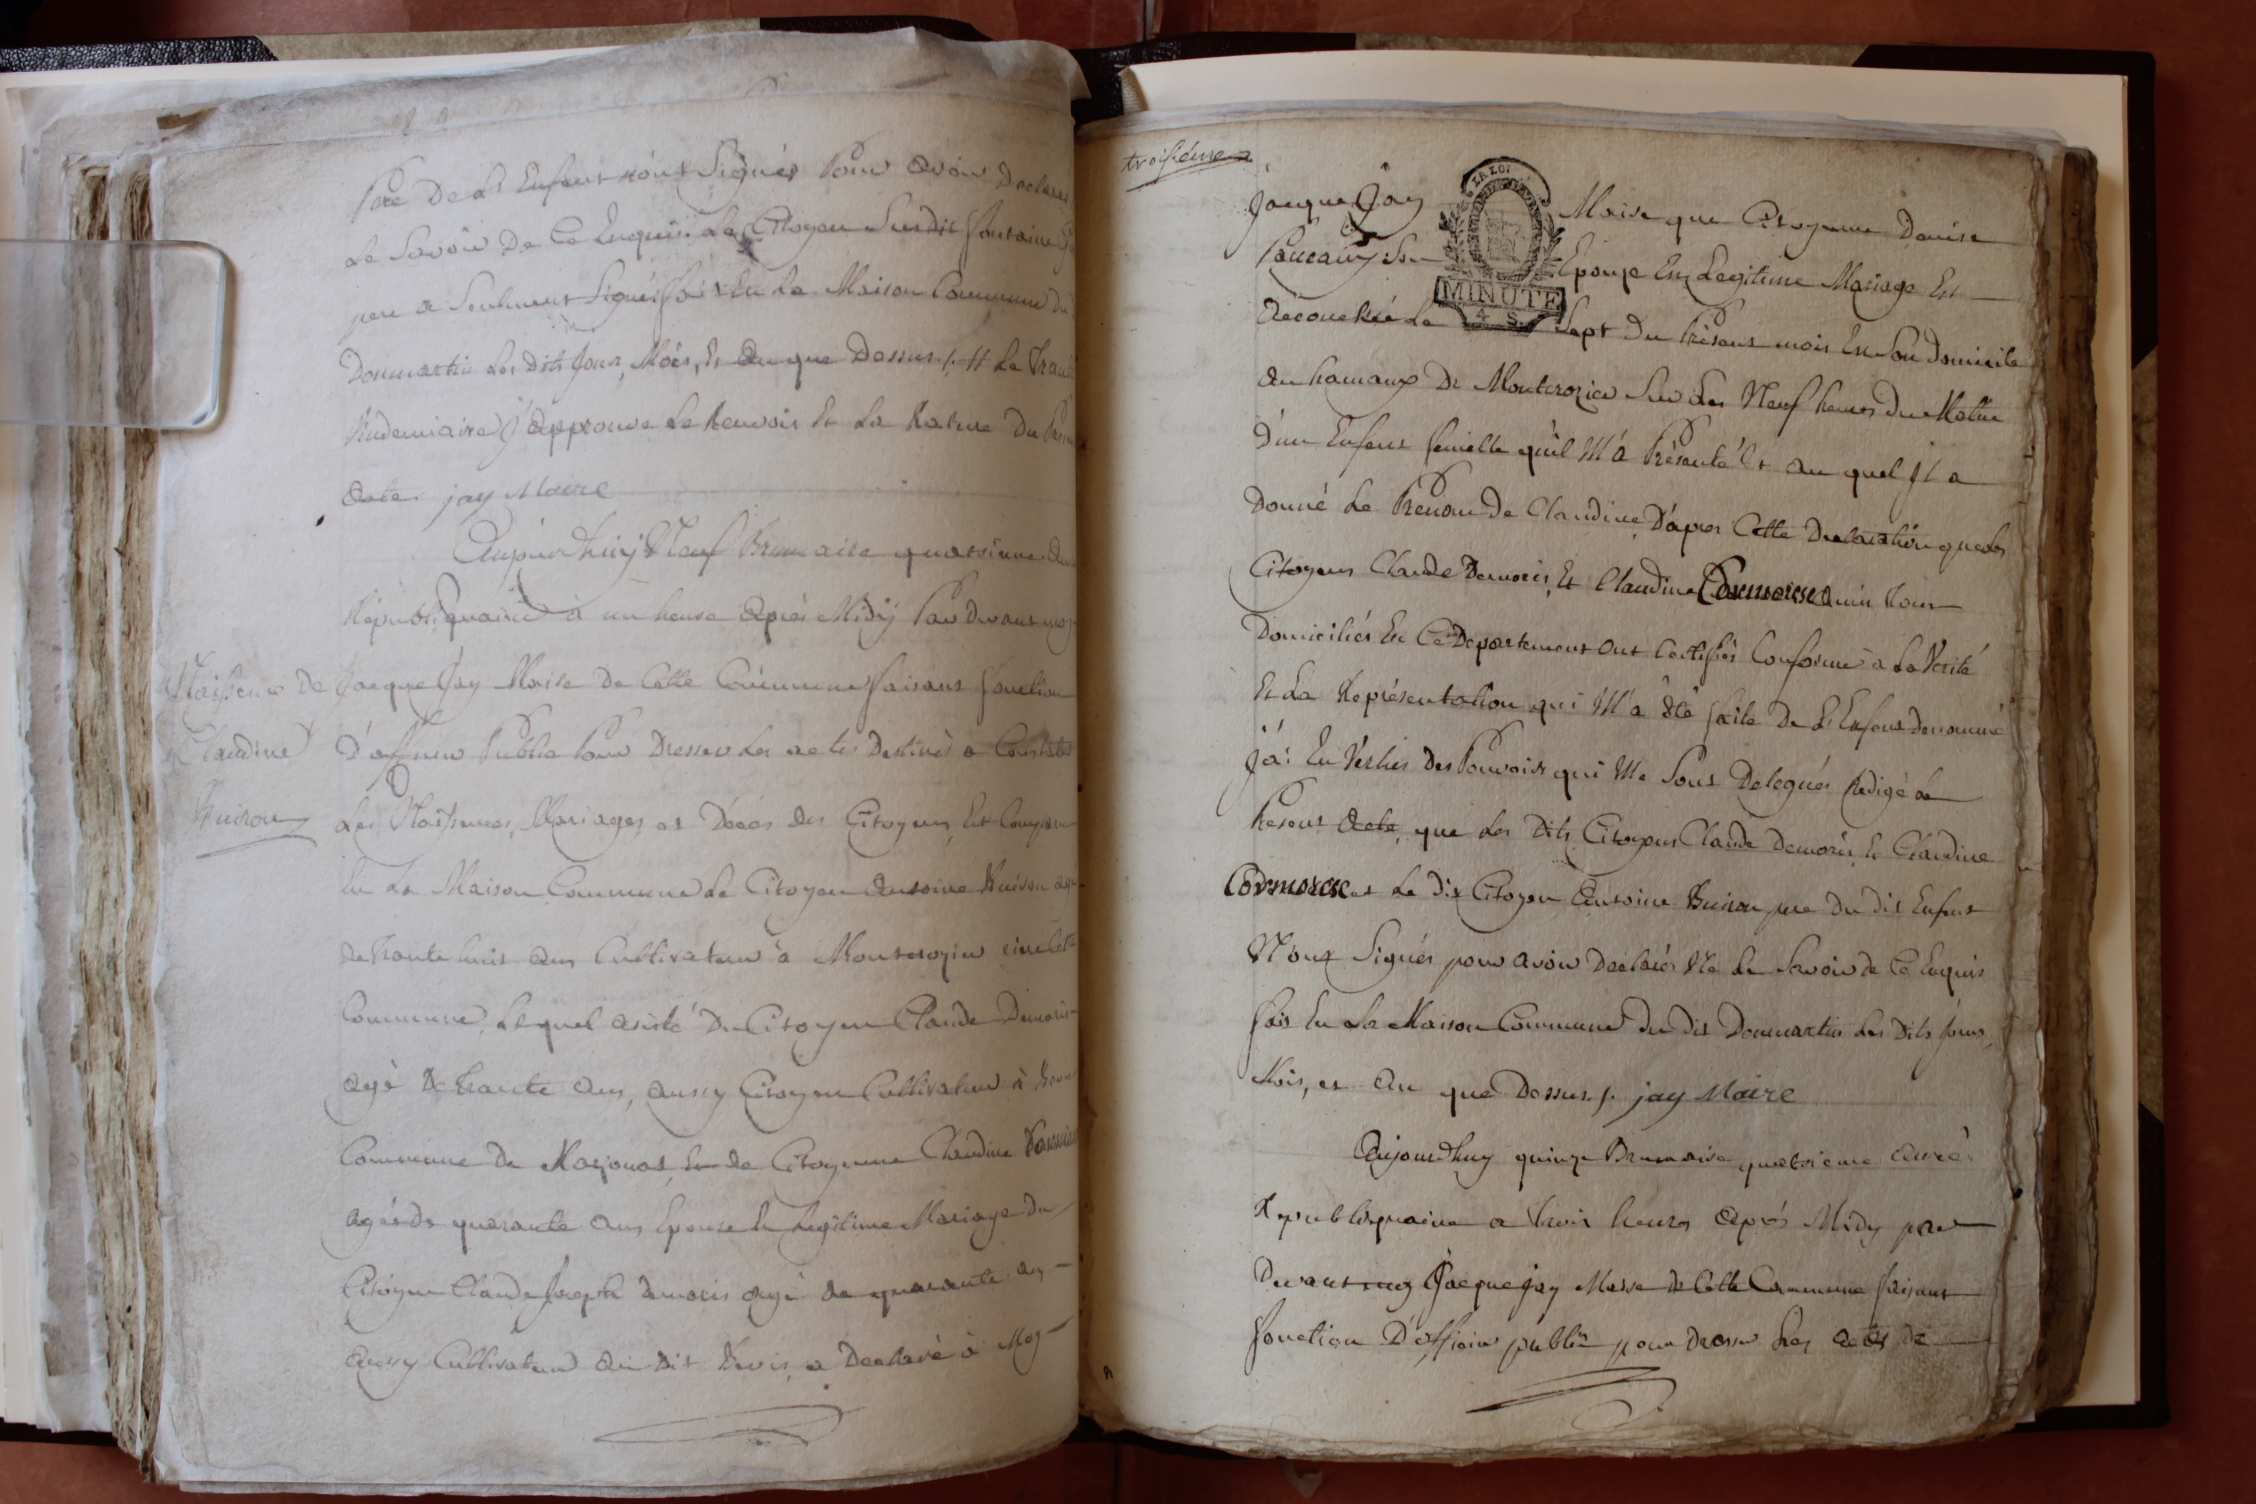 Pere De Lt Enfent n'ont Signés Pour avoir Declarés
Le Savoir De Ce Enquis. Le Citoyen Susdit fontaine
pere a Seulment Signé fais En La Maison Commune Du
Donmartin Les Dits Jour, Mois, Et an que Dessus ./.
Vendemiaire J'approuve Le Renvois Et La Rature Du
Acte jay Maire
Aujourd'huij Neuf Brumaire quatrieme
Républiquaine à un heure Après Midÿ Par Devant moy
Naissence De
Claudine
Buiron
Jacque Jay Maire De Cette Commune faisant fonction
D'officier Public Pour Dresser Les actes Destinés a Constater
Les Naissances, Mariages et Décés Des Citoyens Est Comparu
En La Maison Commune Le Citoyen Antoine Buiron agé
De trante huit Ans Cultivateur à Monterozier
Commune, Lequel asisté Du Citoyen Claude Demoris
agé De trante Ans, aussy Citoyen Cultivateur à
Commune De Marjonas, Et de Citoyenne Claudine
agée De quarante Ans Epouse En Legitime Mariage Du
Citoyen Claude Joseph Demoris agé de quarante an
aussy Cultivateur au Dit a Declaré à Moy
troisiéme
Jacque Jay Maire que Citoyenne Denise
LA LOI
MINUTE
4 S.
Son Epouse En Legitime Mariage Est
Accouchée Le Sept Du Présent mois En Son Domicile
au hamaux De Monterozier Sur Les Neuf heures Du Matin
D'un Enfent femelle qu'il M'a Présenté Et au quel Jl a
Donné Le Prenom De Claudine, D'apres Cette Declaration que Les
Citoyens Claude Demoris, Et Claudine Cormorèce tous
Domiciliés En Ce Departement ont Certifiés Conforme à La Verité
Et La Représentation qui M'a Eté faite De Lt Enfent Denommé
J'ai En Vertus Des Pouvoirs qui Me Sont Delegués Redigé Le
Present Acte, que Les Dits Citoyens Claude Demoris, Et Claudine
Cormorèce et Le Dit Citoyen Antoine Buiron pere Du Dit Enfent
N'ont Signés pour avoir Declarés Ne Le Savoir De Ce Enquis
fais En La Maison Commune Du Dit Donmartin Les Dits Jours
Mois, et An que Dessus ./. jay Maire
Aujourdhuy quinze Brumaire quatrieme Année
Republiquaine a trois heures Aprés Midy par
Devant moy Jacque Jay Maire de Cette Commune faisant
fonction D'officier publiq pour Dresser Les actes De